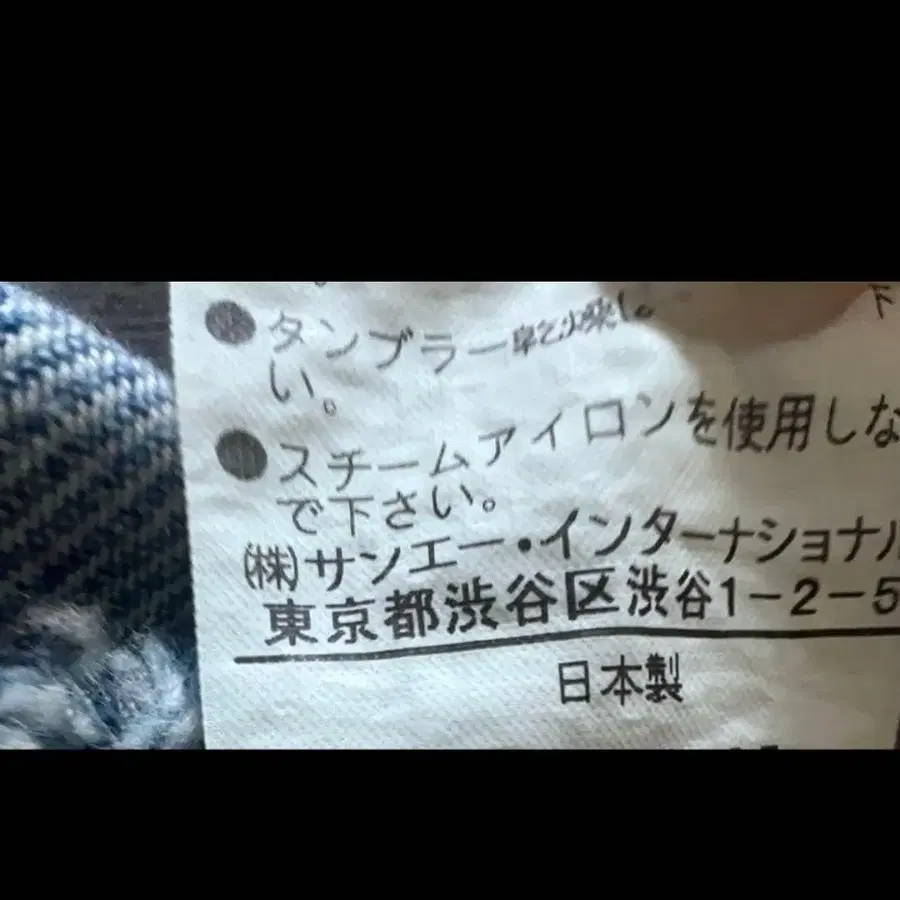 下
● タンブラー乾燥し
い。
● スチームアイロンを使用しな
で下さい。
㈱サンエー・インターナショナル
東京都渋谷区渋谷1-2-5
日本製